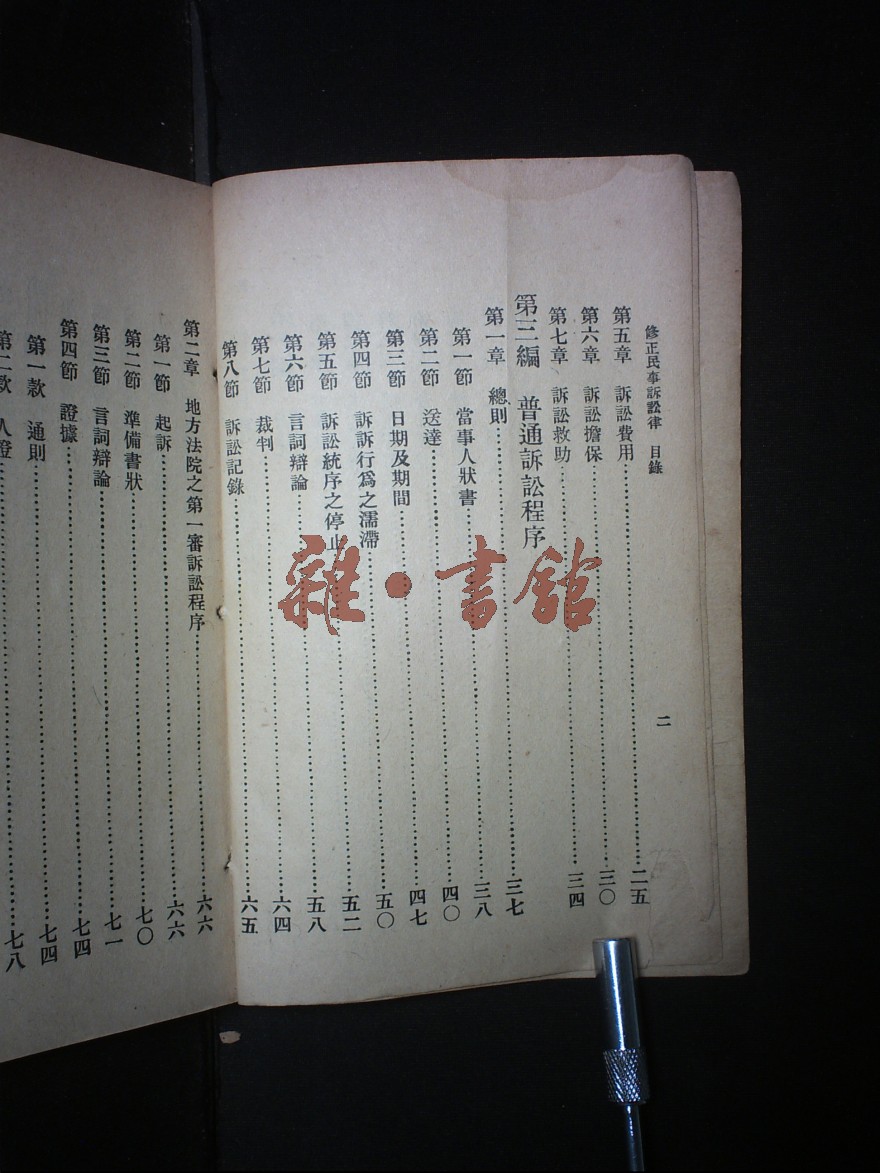 修正民事訴訟律 目錄 二
第五章 訴訟費用……二五
第六章 訴訟擔保……三〇
第七章 訴訟救助……三四
第三編 普通訴訟程序
第一章 總則……三七
第一節 當事人狀書……三八
第二節 送達……四〇
第三節 日期及期間……四七
第四節 訴訴行爲之濡滯……五〇
第五節 訴訟統序之停止……五二
第六節 言詞辯論……五八
第七節 裁判……六四
第八節 訴訟記錄……六五
第二章 地方法院之第一審訴訟程序……六六
第一節 起訴……六六
第二節 準備書狀……七〇
第三節 言詞辯論……七一
第四節 證據……七四
第一款 通則……七四
第二款 人證……七八
雜·書館